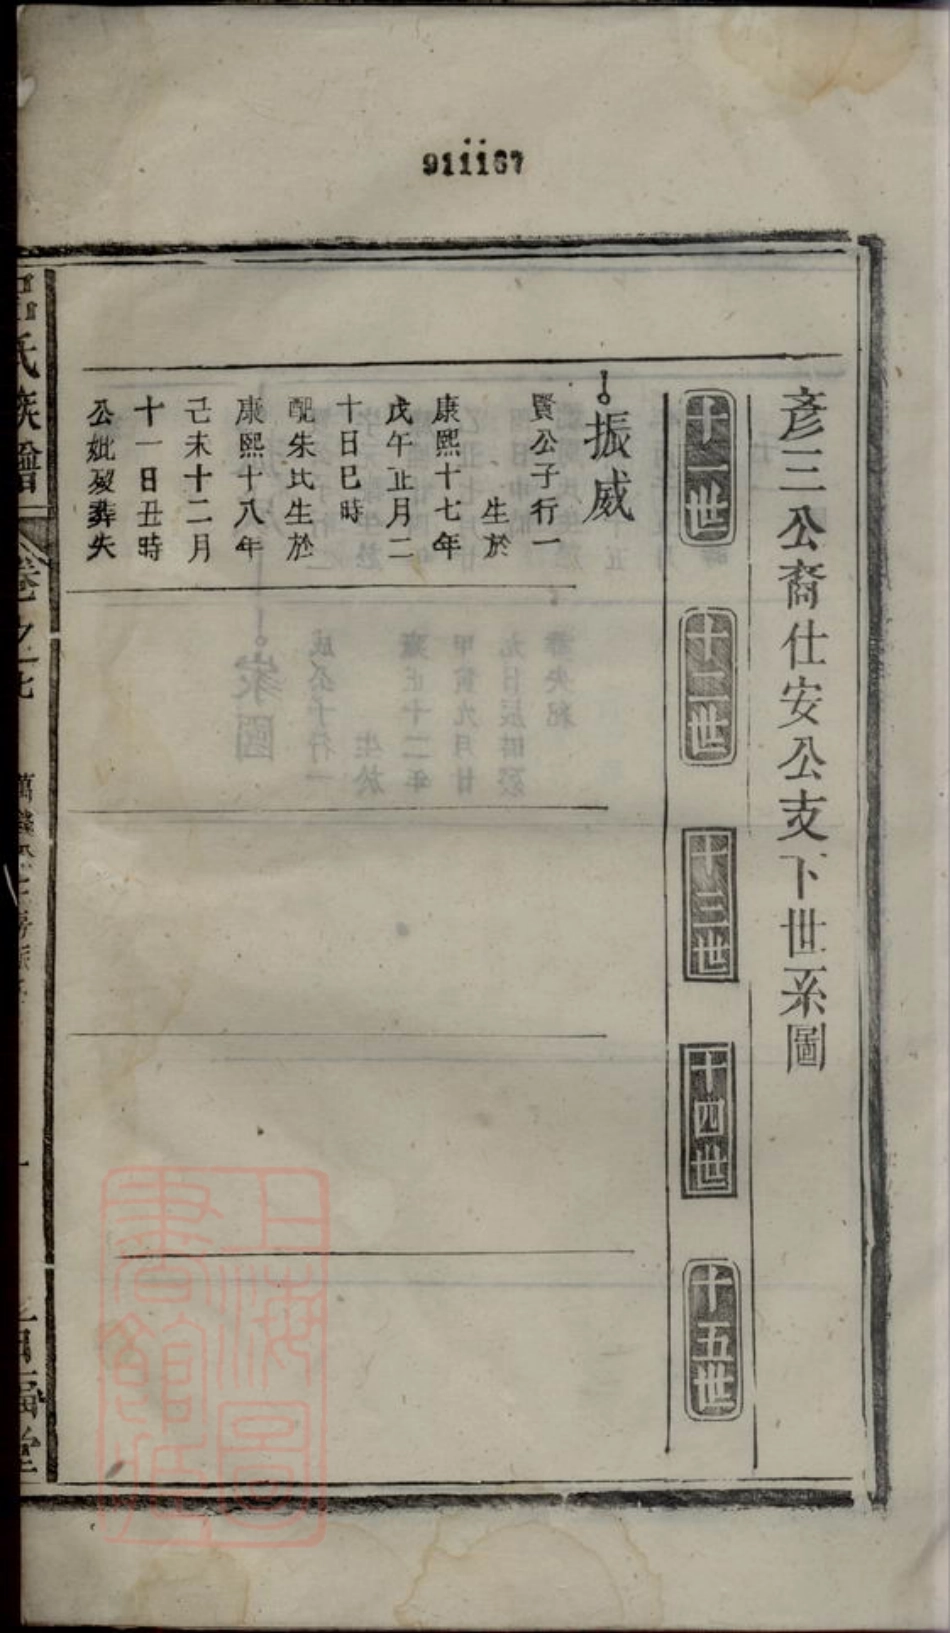 911167
彥三公裔仕安公支下世系圖
十一世
十二世
十三世
十四世
十五世
振威
賢公子行一
生於
康熙十七年
戊午正月二
十日巳時
配朱氏生於
康熙十八年
己未十二月
十一日丑時
公妣歿葬失
氏族譜
卷之七
上海圖
書館藏